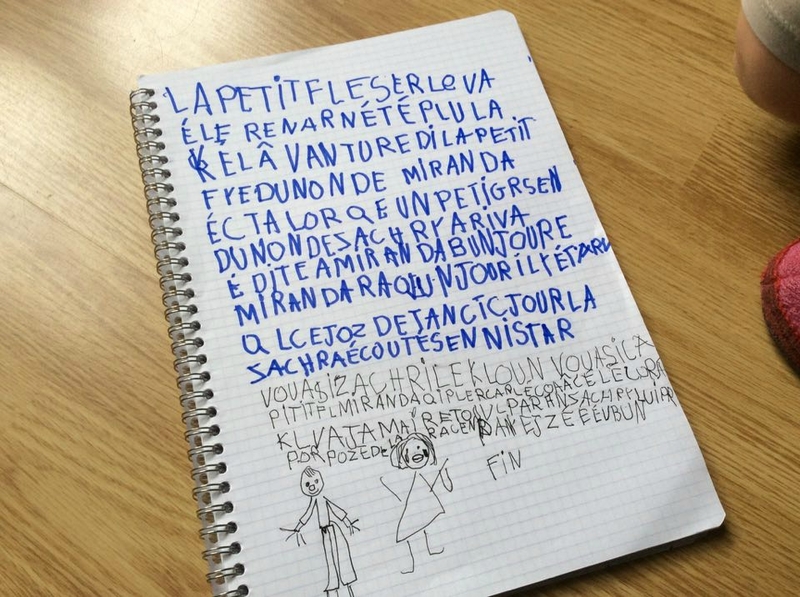 LA PETIT FLE SER LEVA
ÉLE RENAR NÉTÉ PLU LA
KÉL ÂVANTURE DI LA PETIT
FYE DU NON DE MIRANDA
ÉCTALORQE UN PETIGRSEN
DUNONDESACHRYARIVA
E DITEAMIRANDABUNJOURE
MIRANDARAQUUNJOURILYÉTARV
QLCEJOZ DETANCTCJOURLA
SACHRAÉCOUTÉSENNISTAR
VOUASIZACHRILEKLOUN VOUASICA
PITITFLMIRANDA
KLVAJAMA
PORPOZE
FIN